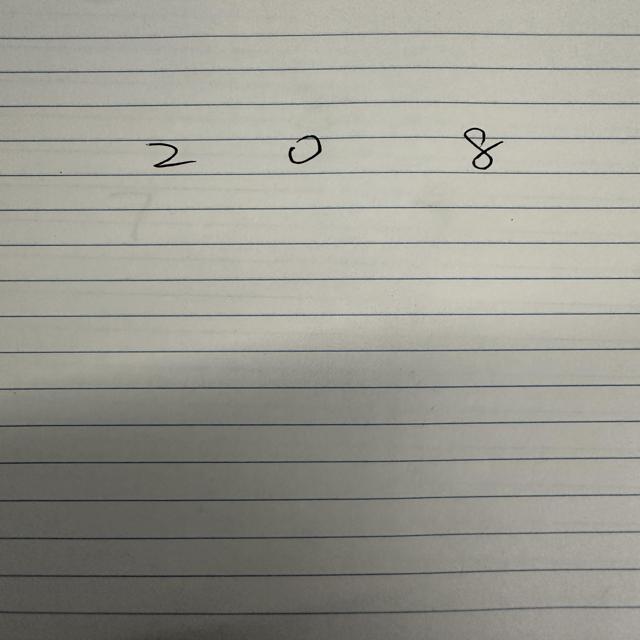 2 0 8